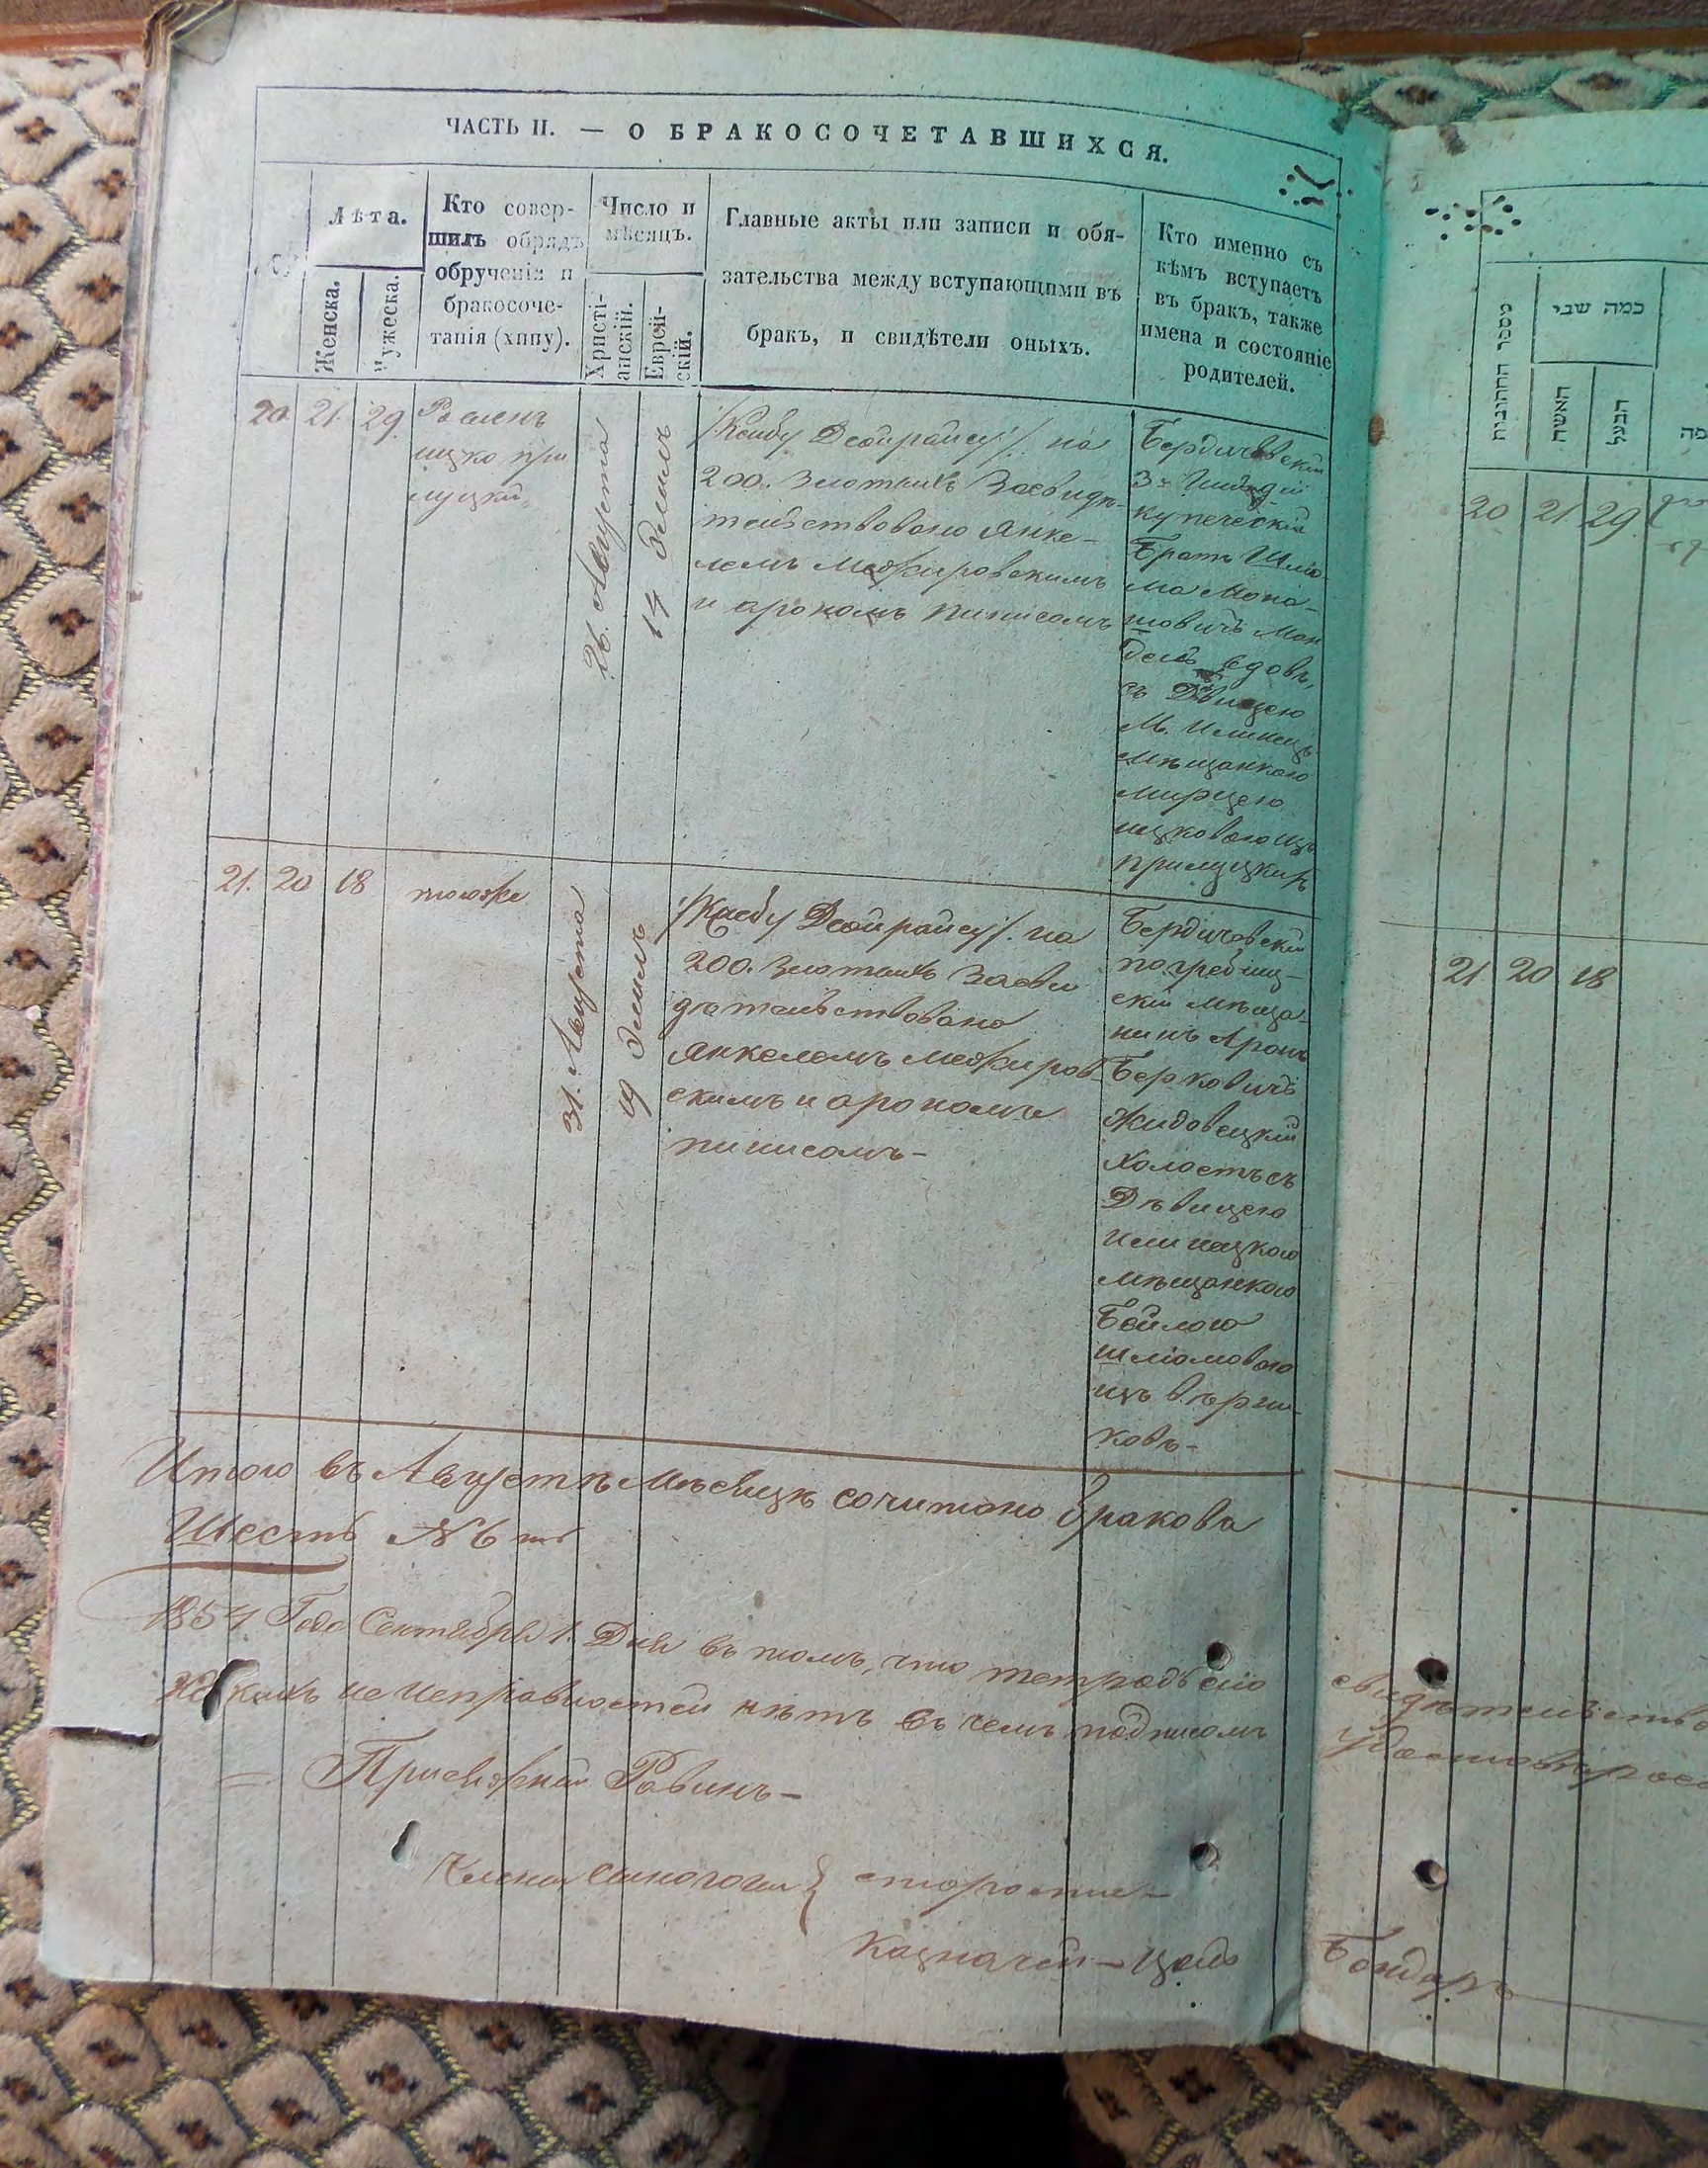 ЧАСТЬ II. — О БРАКОСОЧЕТАВШИХСЯ.
Лѣта.
Женска.
Мужеска.
Кто совер-
шилъ обрядъ
обрученія и
бракосоче-
танія (хппу).
Число и
мѣсяцъ.
Христі-
анскій.
Еврей-
скій.
Главные акты или записи и обя-
зательства между вступающими въ
бракъ, и свидѣтели оныхъ.
Кто именно съ
кѣмъ вступаетъ
въ бракъ, также
имена и состояніе
родителей.
20. 21. 29.
ицко при
луцкій
26. Августа
14 Элилъ
на
200. Злотыхъ Засвидѣ-
тельствовано Янке-
лемъ Межировскимъ
и арономъ пинисомъ
Бердичевскій
3й Гильдіи
купеческій
Братъ Шлио-
ма Мона-
шовичъ Ман
дель вдовъ,
съ Дѣвицею
М. Илинецъ
мѣщанкою
мирцею
ицковою изъ
прилуцкихъ
21. 20 18 тотже
31. Августа
19 Элилъ
на
200. Злотыхъ Засви
дѣтельствовано
Янкелемъ Межиров-
скимъ и арономъ
пинисомъ-
Бердичевскій
погребищ-
скій мѣща-
нинъ Аронъ
Берковичъ
Жидовецкій
Холостъ съ
Дѣвицею
Илинецкою
мѣщанкою
Бейлою
шліомовою
изъ вѣрни-
ковъ-
Итого въ Августѣ Мѣсяцѣ сочитано браковъ
Шесть № 6
1854 Года Сентября 1. Дня въ томъ, что тетрадѣ сію
неисправностей нѣтъ въ чемъ подписомъ
= Присяжный Равинъ-
Члены синогоги } старосте-
Казначей-
מספר החתונות
כמה שני
האשה
הבעל
20 21 29
21 20 18
Бондаръ